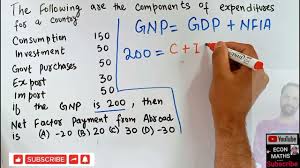 The following are the components of expenditures
for a country
Consumption 150
Investment 50
Govt purchases 50
Export 30
Import 50
If the GNP is 200, then
Net Factor Payment from Abroad
is (A) -20 (B) 20 (C) 30 (D) -30
GNP = GDP + NFIA
200 = C + I
SUBSCRIBE
YouTube
ECON
MATHS
Subscribe